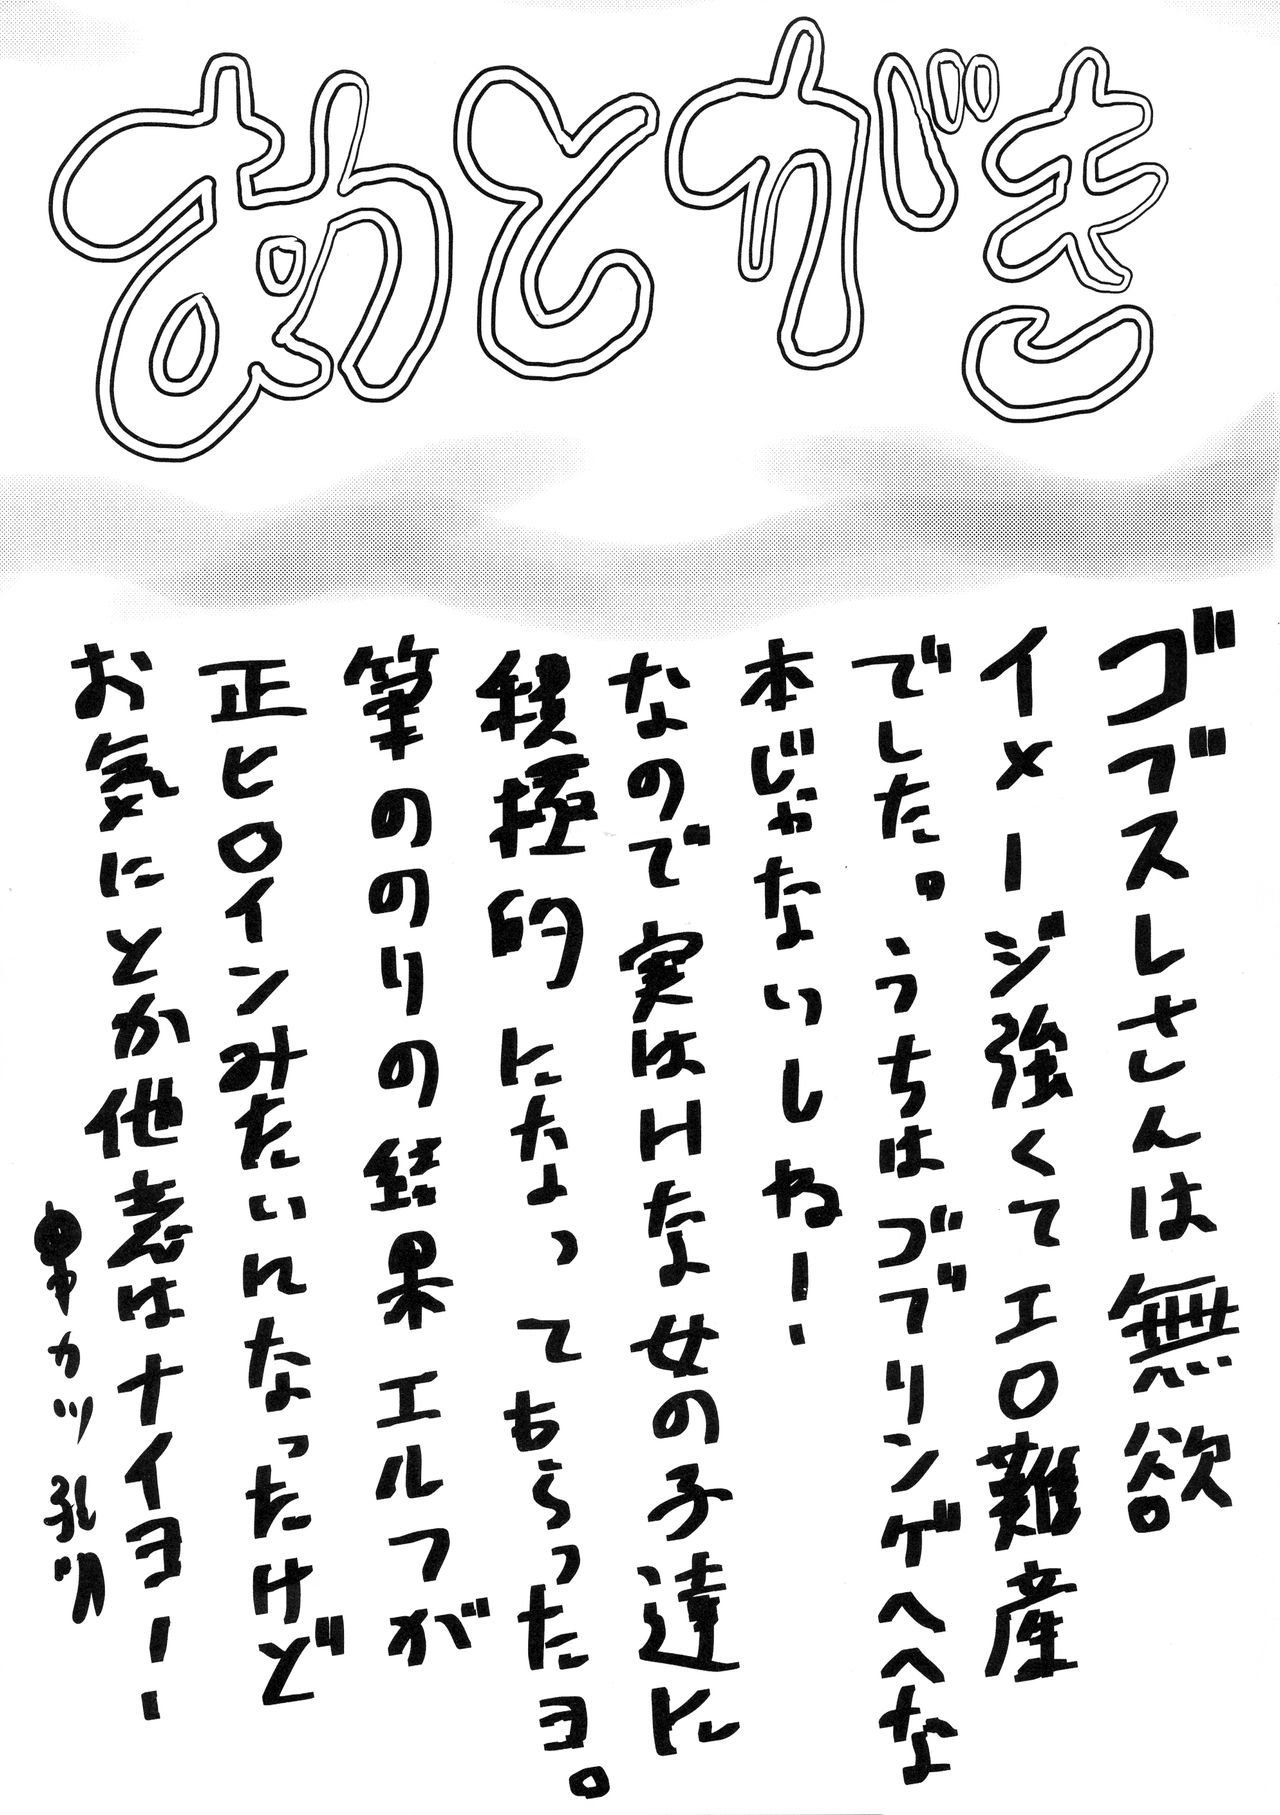 あとがき
ゴブスレさんは無欲
イメージ強くてエロ難産
でした。うちはゴブリンゲヘヘな
本じゃないしね!
なので実はHな女の子達に
積極的になってもらったヨ。
筆ののりの結果エルフが
正ヒロインみたいになったけど
お気にとか他意はナイヨ!